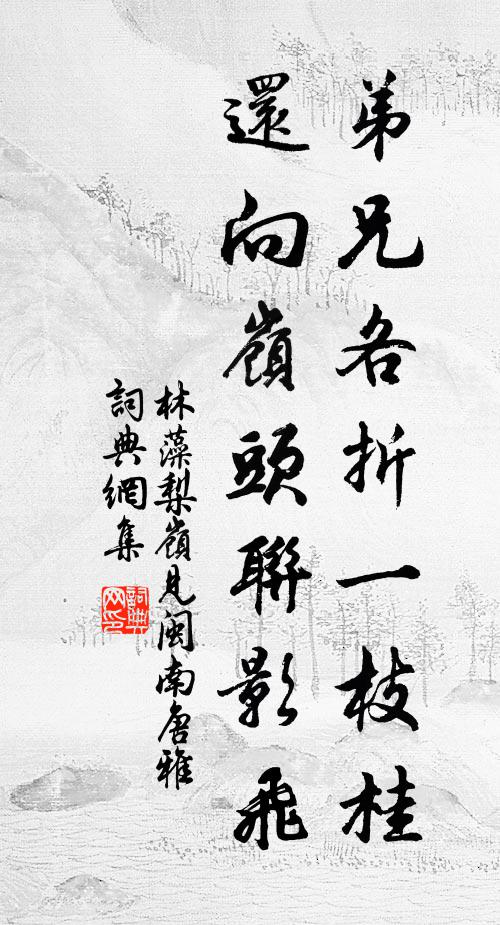 弟兄各折一枝桂
還向嶺頭聯影飛
林藻梨嶺見閩南唐雅
詞典網集
詞典
网印